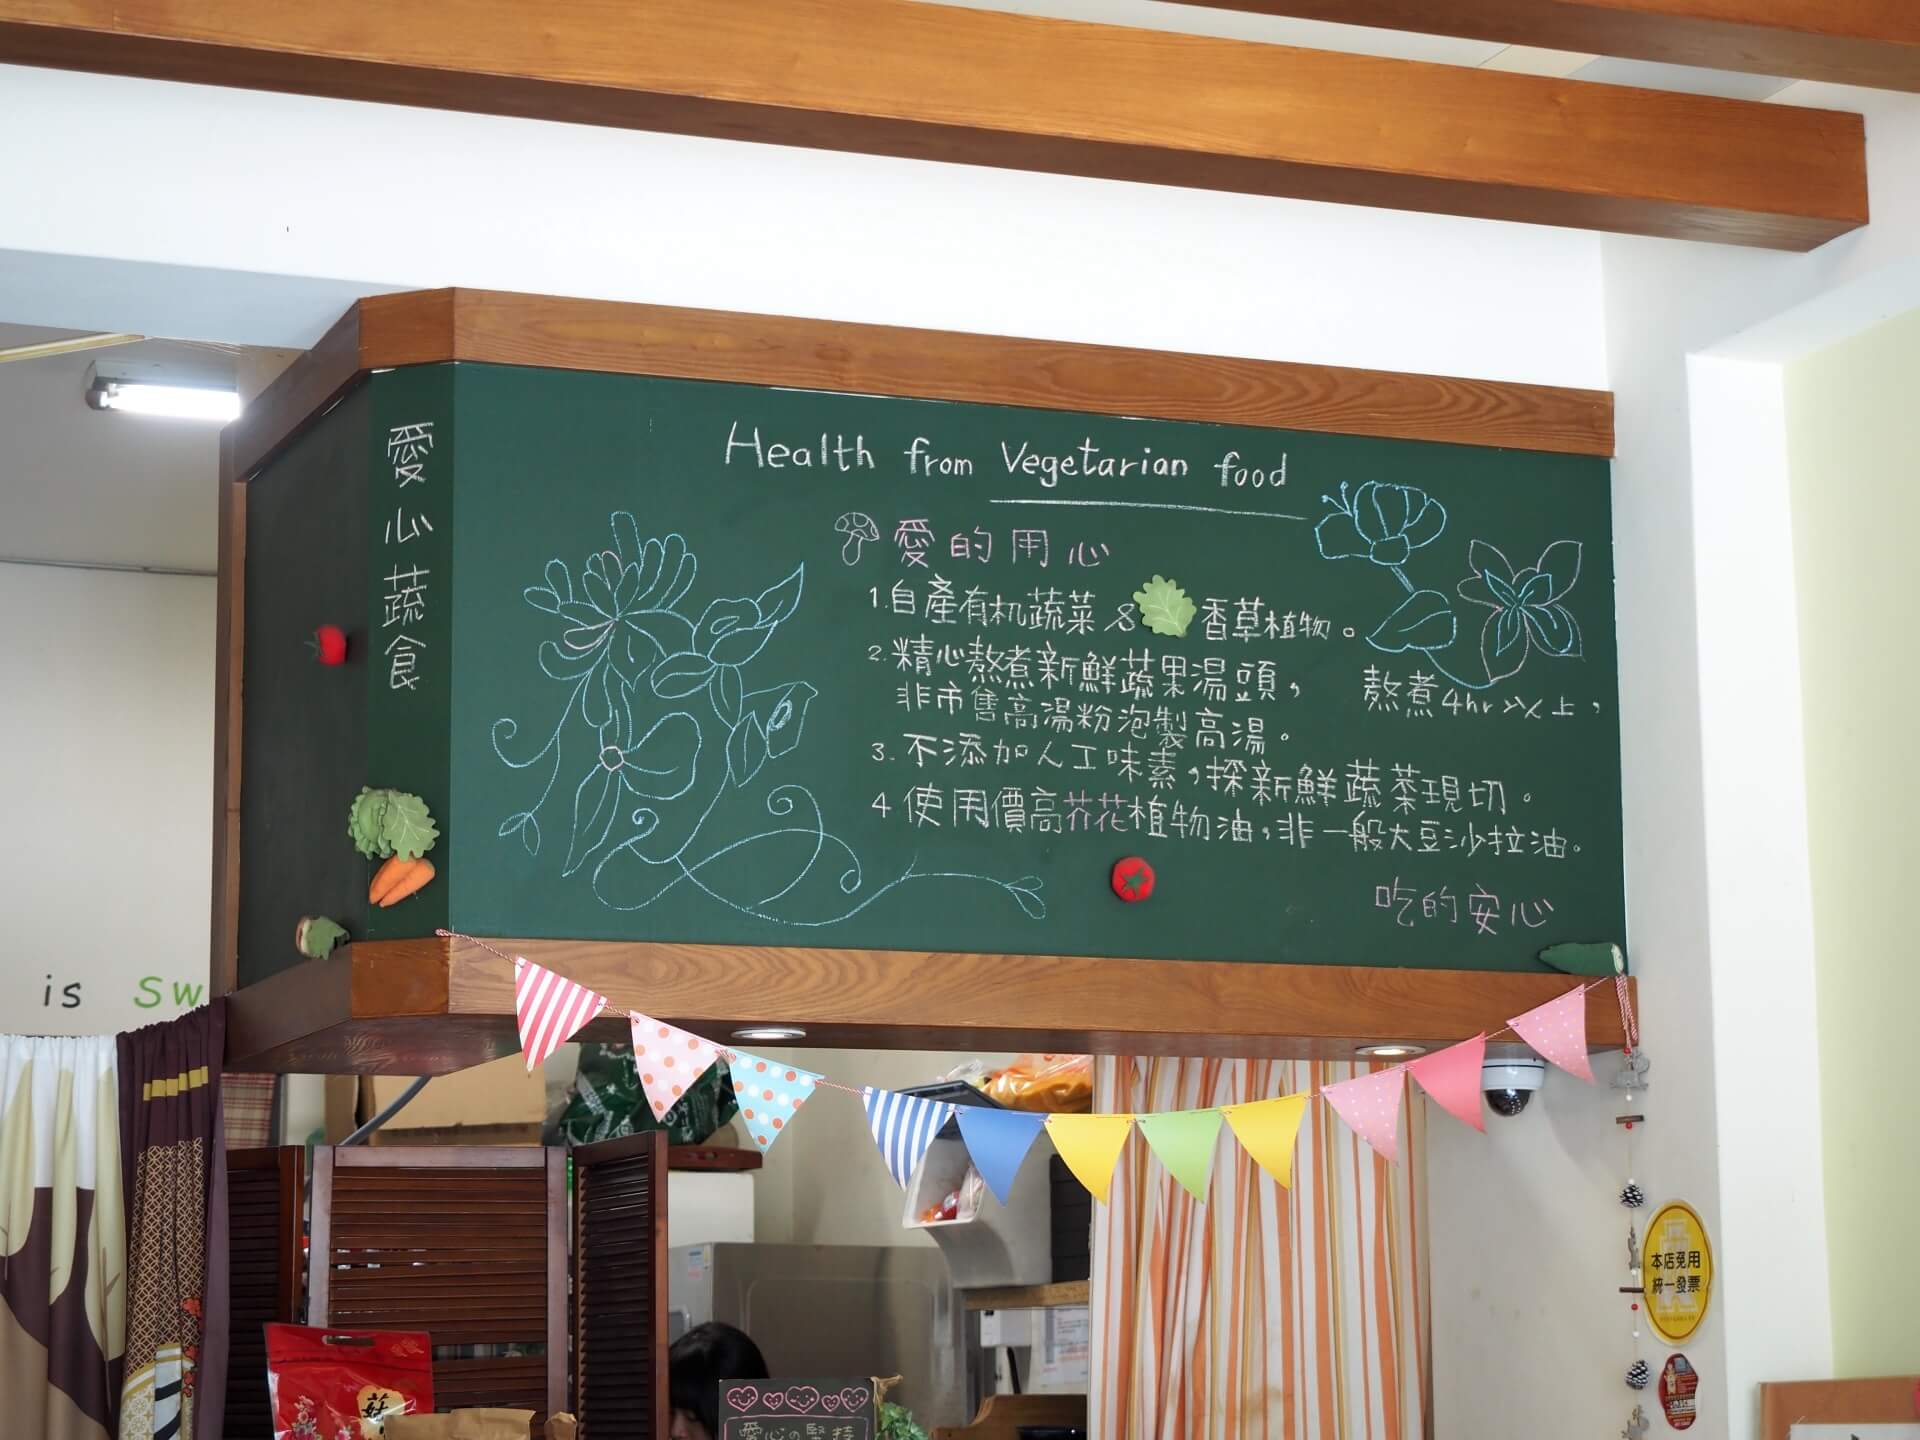 愛心蔬食
Health from Vegetarian food
愛的用心
1.自產有机蔬菜 & 香草植物。
2.精心熬煮新鮮蔬果湯頭， 熬煮4hr以上，
非市售高湯粉泡製高湯。
3.不添加人工味素，採新鮮蔬菜現切。
4 使用價高芥花植物油，非一般大豆沙拉油。
吃的安心
is Sw
本店免用
統一發票
愛心の堅持